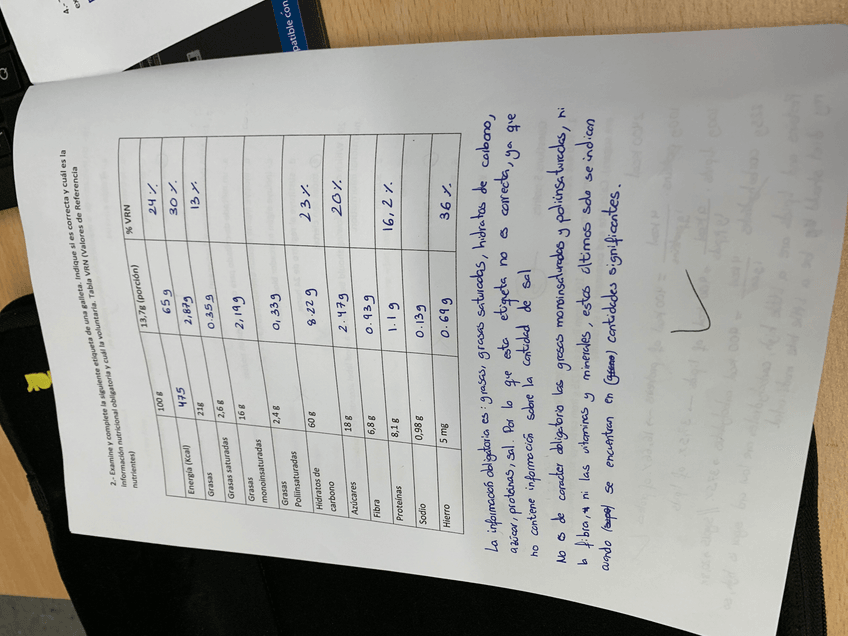 2.- Examine y complete la siguiente etiqueta de una galleta. Indique si es correcta y cuál es la
información nutricional obligatoria y cuál la voluntaria. Tabla VRN (Valores de Referencia
nutrientes)
100 g 13,7g (porción) % VRN
Energía (Kcal) 475 65g 24%
Grasas 21g 2,87g 30%
Grasas saturadas 2,6 g 0.35g 13%
Grasas monoinsaturadas 16 g 2,19g
Grasas Poliinsaturadas 2,4 g 0,33g
Hidratos de carbono 60 g 8.22g 23%
Azúcares 18 g 2.47g 20%
Fibra 6,8 g 0.93g
Proteínas 8,1 g 1.1g 16,2%
Sodio 0,98 g 0.13g
Hierro 5 mg 0.69g 36%
La información obligatoria es: grasas, grasas saturadas, hidratos de carbono,
azúcar, proteínas, sal. Por lo que esta etiqueta no es correcta, ya que
no contiene información sobre la cantidad de sal
No es de caracter obligatorio las grasas monoinsaturadas y poliinsaturadas, ni
la fibra, ni las vitaminas y minerales, estos últimos solo se indican
cuando se encuentran en cantidades significantes.
patible con
4.-